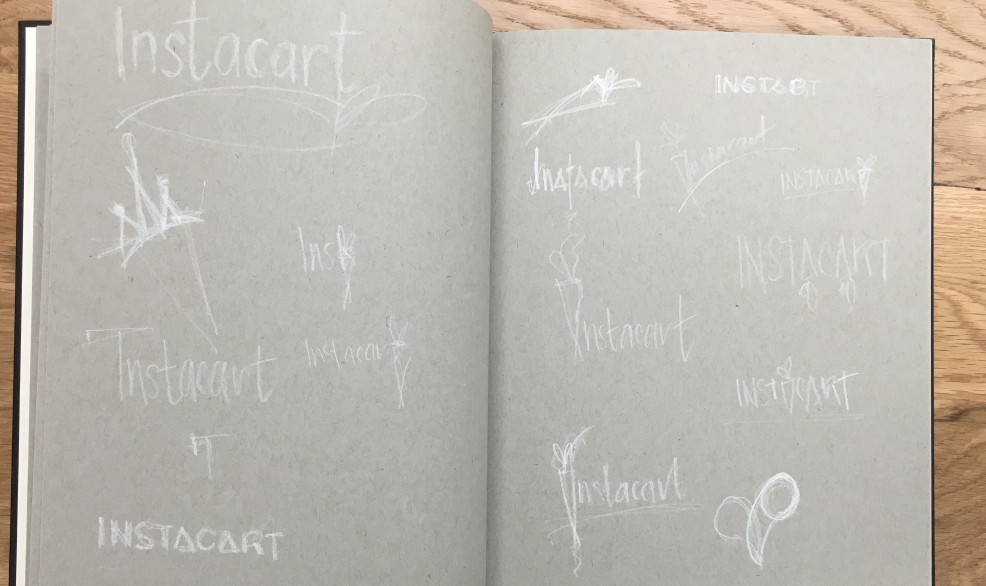 Instacart
Inst
Instacart
Instacar
T
INSTACART
INSTACART
Instacart
Instacart
INSTACART
INSTACART
Instacart
INSTACART
Instacart